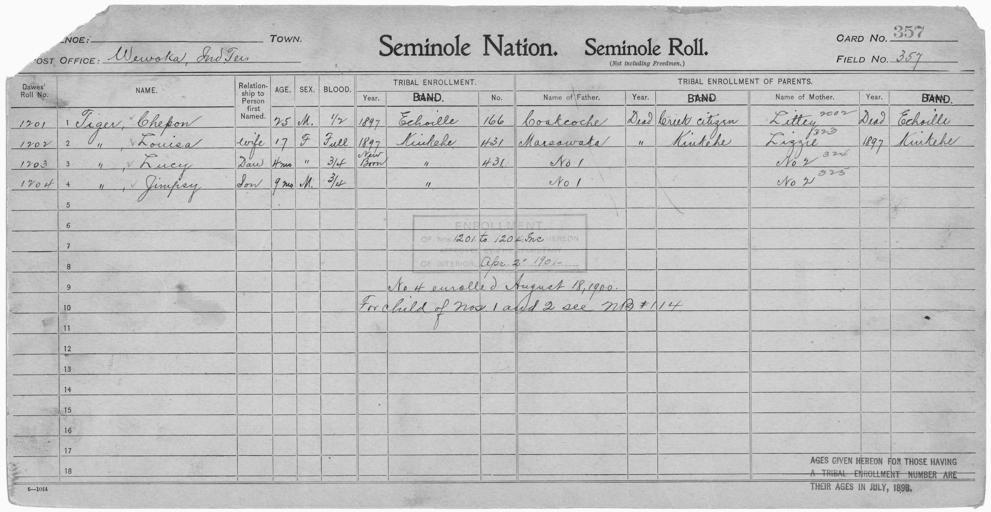 ENCE: TOWN.
Seminole Nation. Seminole Roll.
(Not including Freedmen.)
CARD NO. 357
OST OFFICE: Wewoka, Ind Ter
FIELD NO. 357
Dawes' Roll No. NAME. Relationship to Person first Named. AGE. SEX. BLOOD. TRIBAL ENROLLMENT. TRIBAL ENROLLMENT OF PARENTS.
Year. BAND. No. Name of Father. Year. BAND Name of Mother. Year. BAND.
1201 1 Tiger, Chepon 25 M. 1/2 1897 Echoille 166 Cookcoche Dead Creek citizen Litten 2002 Dead Echoille
1202 2 " , Louisa wife 17 F Full 1897 Kinkehe 431 Marsowata " Kinkehe Lizzie 1323 1897 Kinkehe
1203 3 " , Lucy Dau 4mo " 3/4 New Born " 431 No 1 No 2 324
1204 4 " , Jimpsy Son 9 mo M. 3/4 " No 1 No 2 325
5
6 ENROLLMENT
7 OF HEREON 1201 to 1204 Inc
8 OF INTERIOR Apr 2" 1901
9 No 4 enrolled August 18, 1900.
10 For child of Nos 1 and 2 see NB #114
11
12
13
14
15
16
17
18
AGES GIVEN HEREON FOR THOSE HAVING
A TRIBAL ENROLLMENT NUMBER ARE
THEIR AGES IN JULY, 1898.
6—1014